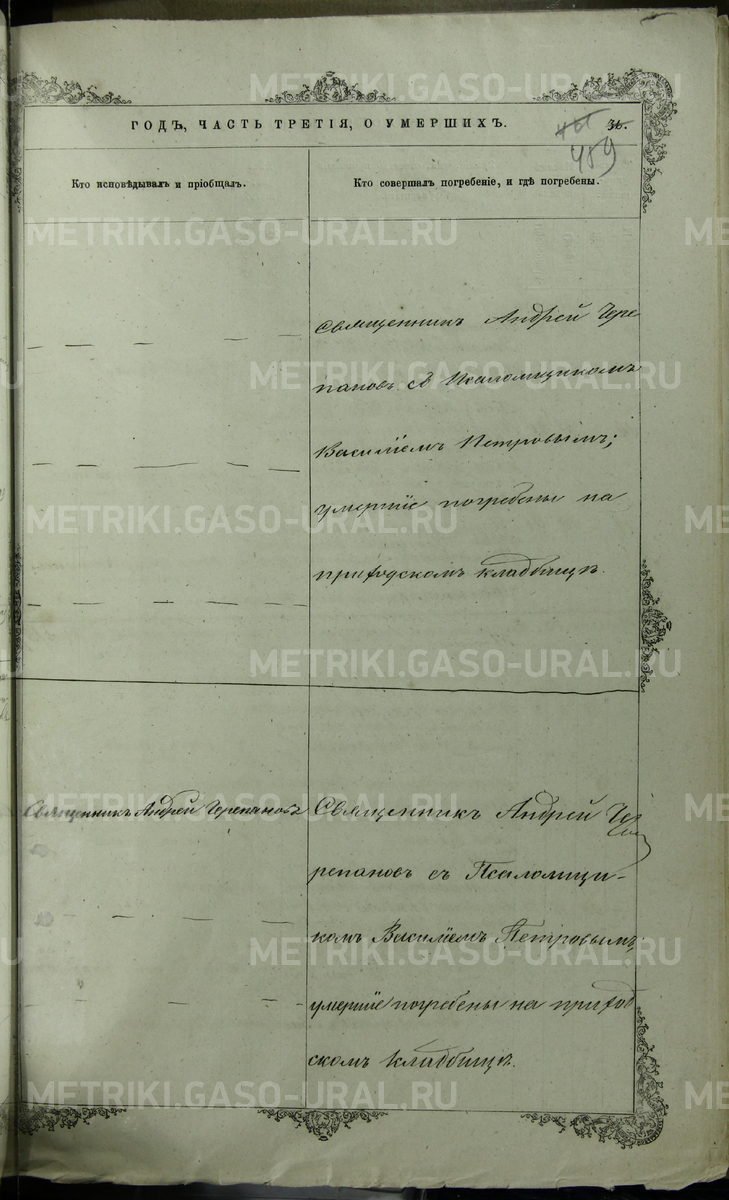 METRIKI.GASO-URAL.RU
ГОДЪ, ЧАСТЬ ТРЕТІЯ, О УМЕРШИХЪ.
459
Кто исповѣдывалъ и пріобщалъ.
Кто совершалъ погребеніе, и гдѣ погребены.
METRIKI.GASO-URAL.RU
Священникъ Андрей Чере-
пановъ съ Псаломщикомъ
METRIKI.GASO-URAL.RU
Василіемъ Петровымъ;
умершіе погребены на
METRIKI.GASO-URAL.RU
приходскомъ кладбищѣ.
METRIKI.GASO-URAL.RU
Священникъ Андрей Черепановъ
Священникъ Андрей Че-
METRIKI.GASO-URAL.RU
репановъ съ Псаломщи-
комъ Василіемъ Петровымъ;
METRIKI.GASO-URAL.RU
умершіе погребены на приход
скомъ кладбищѣ.
METRIKI.GASO-URAL.RU